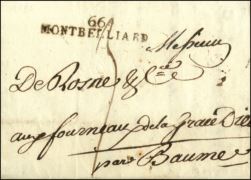 66
MONTBELLIARD
Messieurs
De Rosne & Cie
aux fourneau de la Grace Dieu
par Baume